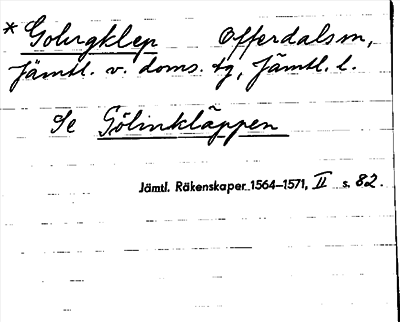 * Golugklep Offerdals sn,
Jämtl. v. doms. tg, Jämtl. l.
Se Gölinkläppen
Jämtl. Räkenskaper 1564–1571, II s. 82.